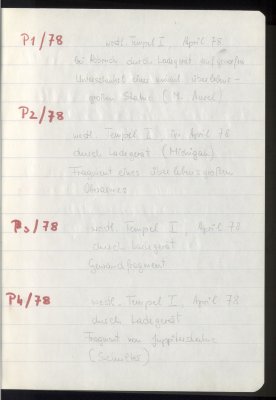 P1/78 westl. Tempel I, April 78
bei Abbruch durch Ladegerät aufgerissen
Unterschenkel einer männl. überlebens-
großen Statue (M. Aurel)
P2/78
westl. Tempel I, im April 78
durch Ladegerät (Michigan)
Fragment eines überlebensgroßen
Oberarmes
P3/78 westl. Tempel I, April 78
durch Ladegerät
Gewandfragment
P4/78 westl. Tempel I, April 78
durch Ladegerät
Fragment von Juppiterstatue
(Schulter)